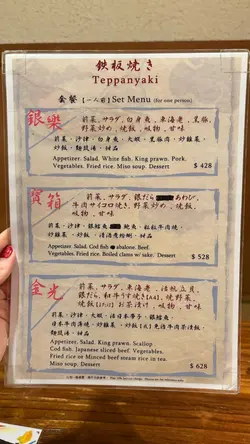 鉄板焼き
Teppanyaki
套餐【一人前】Set Menu (for one person)
銀樂
前菜、サラダ、白身魚、車海老、黒豚、
野菜炒め、焼飯、吸物、甘味
前菜、沙律、白身魚、大蝦、黑豚肉、炒雜菜、
炒飯、麵豉湯、甜品
Appetizer. Salad. White fish. King prawn. Pork.
Vegetables. Fried rice. Miso soup. Dessert
$ 428
寶箱
前菜、サラダ、銀だら あわび、
牛肉サイコロ焼き、野菜炒め、焼飯、
吸物、甘味
前菜、沙律、銀鱈魚 鮑魚、粒粒牛肉燒、
炒雜菜、炒飯、清酒煮蛤蜊、甜品
Appetizer. Salad. Cod fish abalone. Beef.
Vegetables. Fried rice. Boiled clams w/ sake. Dessert
$ 528
金光
前菜、サラダ、車海老、帆立貝、
銀だら、和牛うす焼き
焼野菜、
焼飯 お茶漬け、甘味
前菜、沙律、大蝦、活日本帶子、銀鱈魚、
日本牛肉薄燒、炒雜菜、炒飯
免治牛肉茶漬飯、
麵豉湯、甜品
Appetizer. Salad. King prawn. Scallop.
Cod fish. Japanese sliced beef. Vegetables.
Fried rice or Minced beef steam rice in tea.
Miso soup. Dessert
$ 628